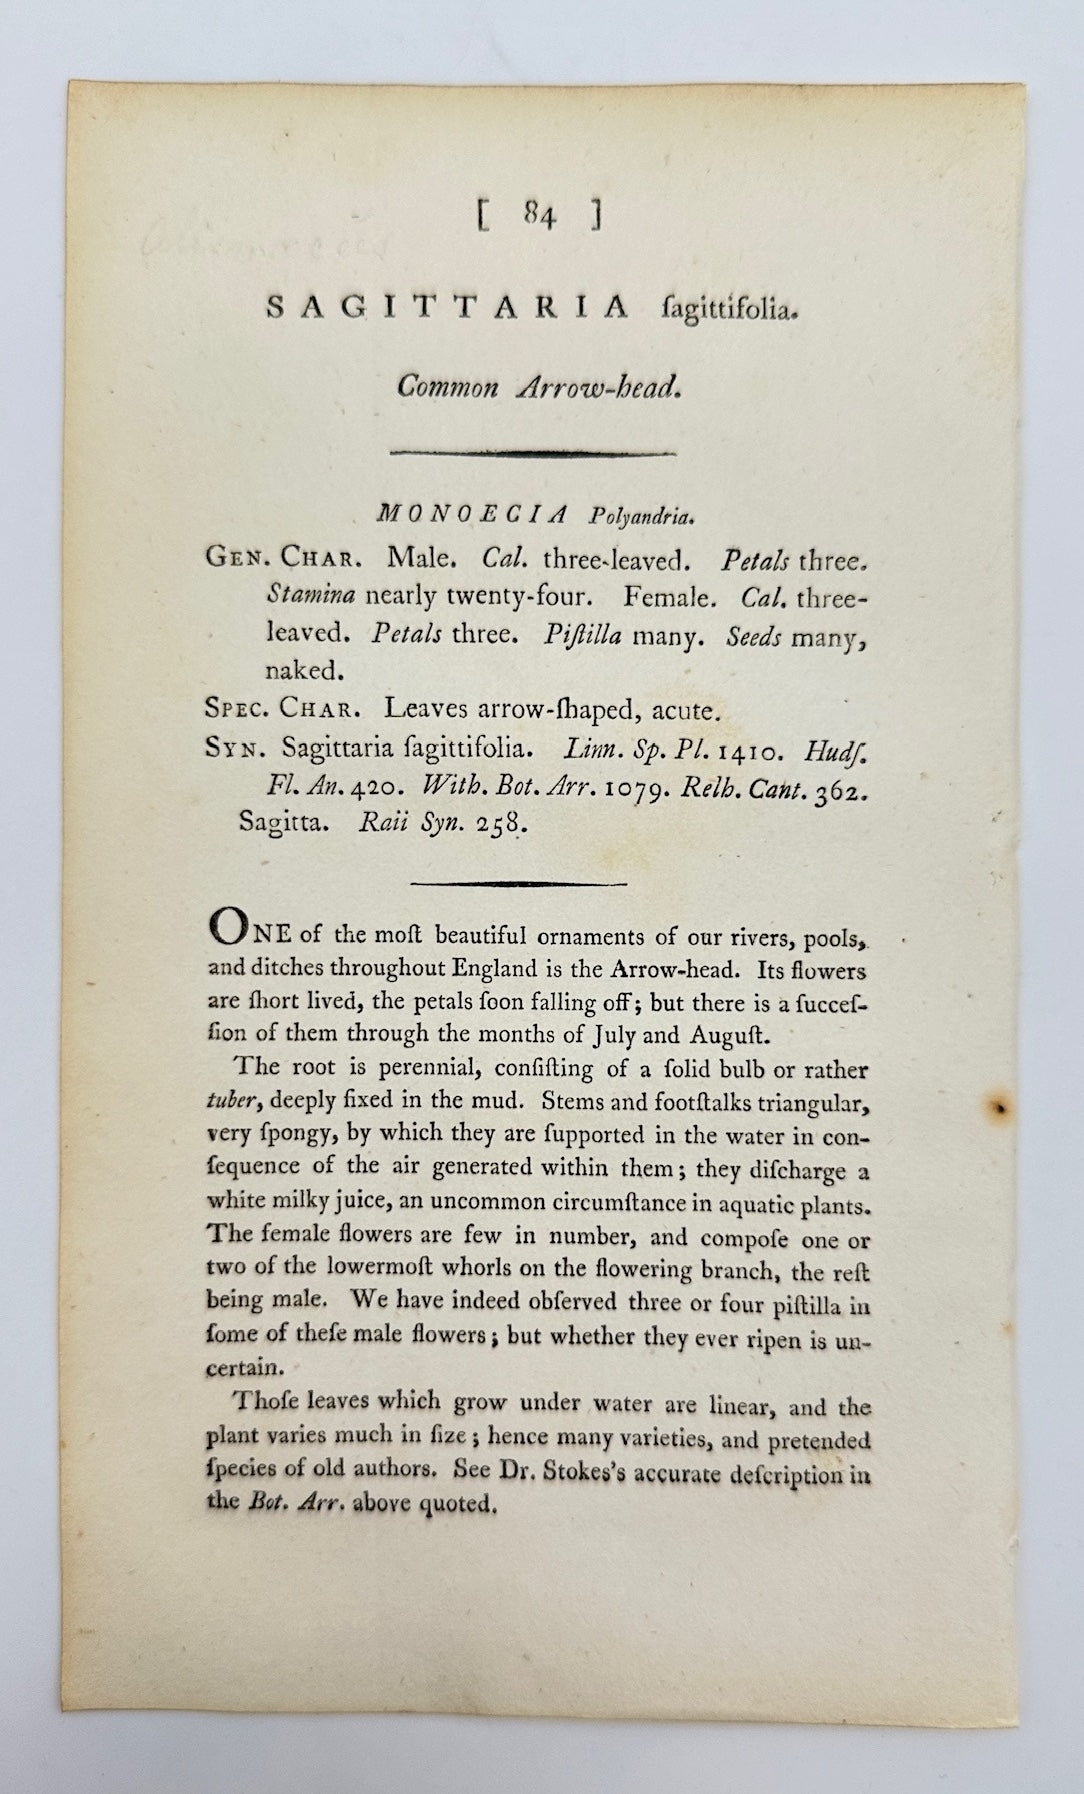 [ 84 ]
SAGITTARIA ſagittifolia.
Common Arrow-head.
MONOECIA Polyandria.
GEN. CHAR. Male. Cal. three-leaved. Petals three.
Stamina nearly twenty-four. Female. Cal. three-
leaved. Petals three. Piſtilla many. Seeds many,
naked.
SPEC. CHAR. Leaves arrow-ſhaped, acute.
SYN. Sagittaria ſagittifolia. Linn. Sp. Pl. 1410. Hudſ.
Fl. An. 420. With. Bot. Arr. 1079. Relh. Cant. 362.
Sagitta. Raii Syn. 258.
ONE of the moſt beautiful ornaments of our rivers, pools,
and ditches throughout England is the Arrow-head. Its flowers
are ſhort lived, the petals ſoon falling off; but there is a ſucceſ-
ſion of them through the months of July and Auguſt.
The root is perennial, conſiſting of a ſolid bulb or rather
tuber, deeply fixed in the mud. Stems and footſtalks triangular,
very ſpongy, by which they are ſupported in the water in con-
ſequence of the air generated within them; they diſcharge a
white milky juice, an uncommon circumſtance in aquatic plants.
The female flowers are few in number, and compoſe one or
two of the lowermoſt whorls on the flowering branch, the reſt
being male. We have indeed obſerved three or four piſtilla in
ſome of theſe male flowers; but whether they ever ripen is un-
certain.
Thoſe leaves which grow under water are linear, and the
plant varies much in ſize; hence many varieties, and pretended
ſpecies of old authors. See Dr. Stokes's accurate deſcription in
the Bot. Arr. above quoted.